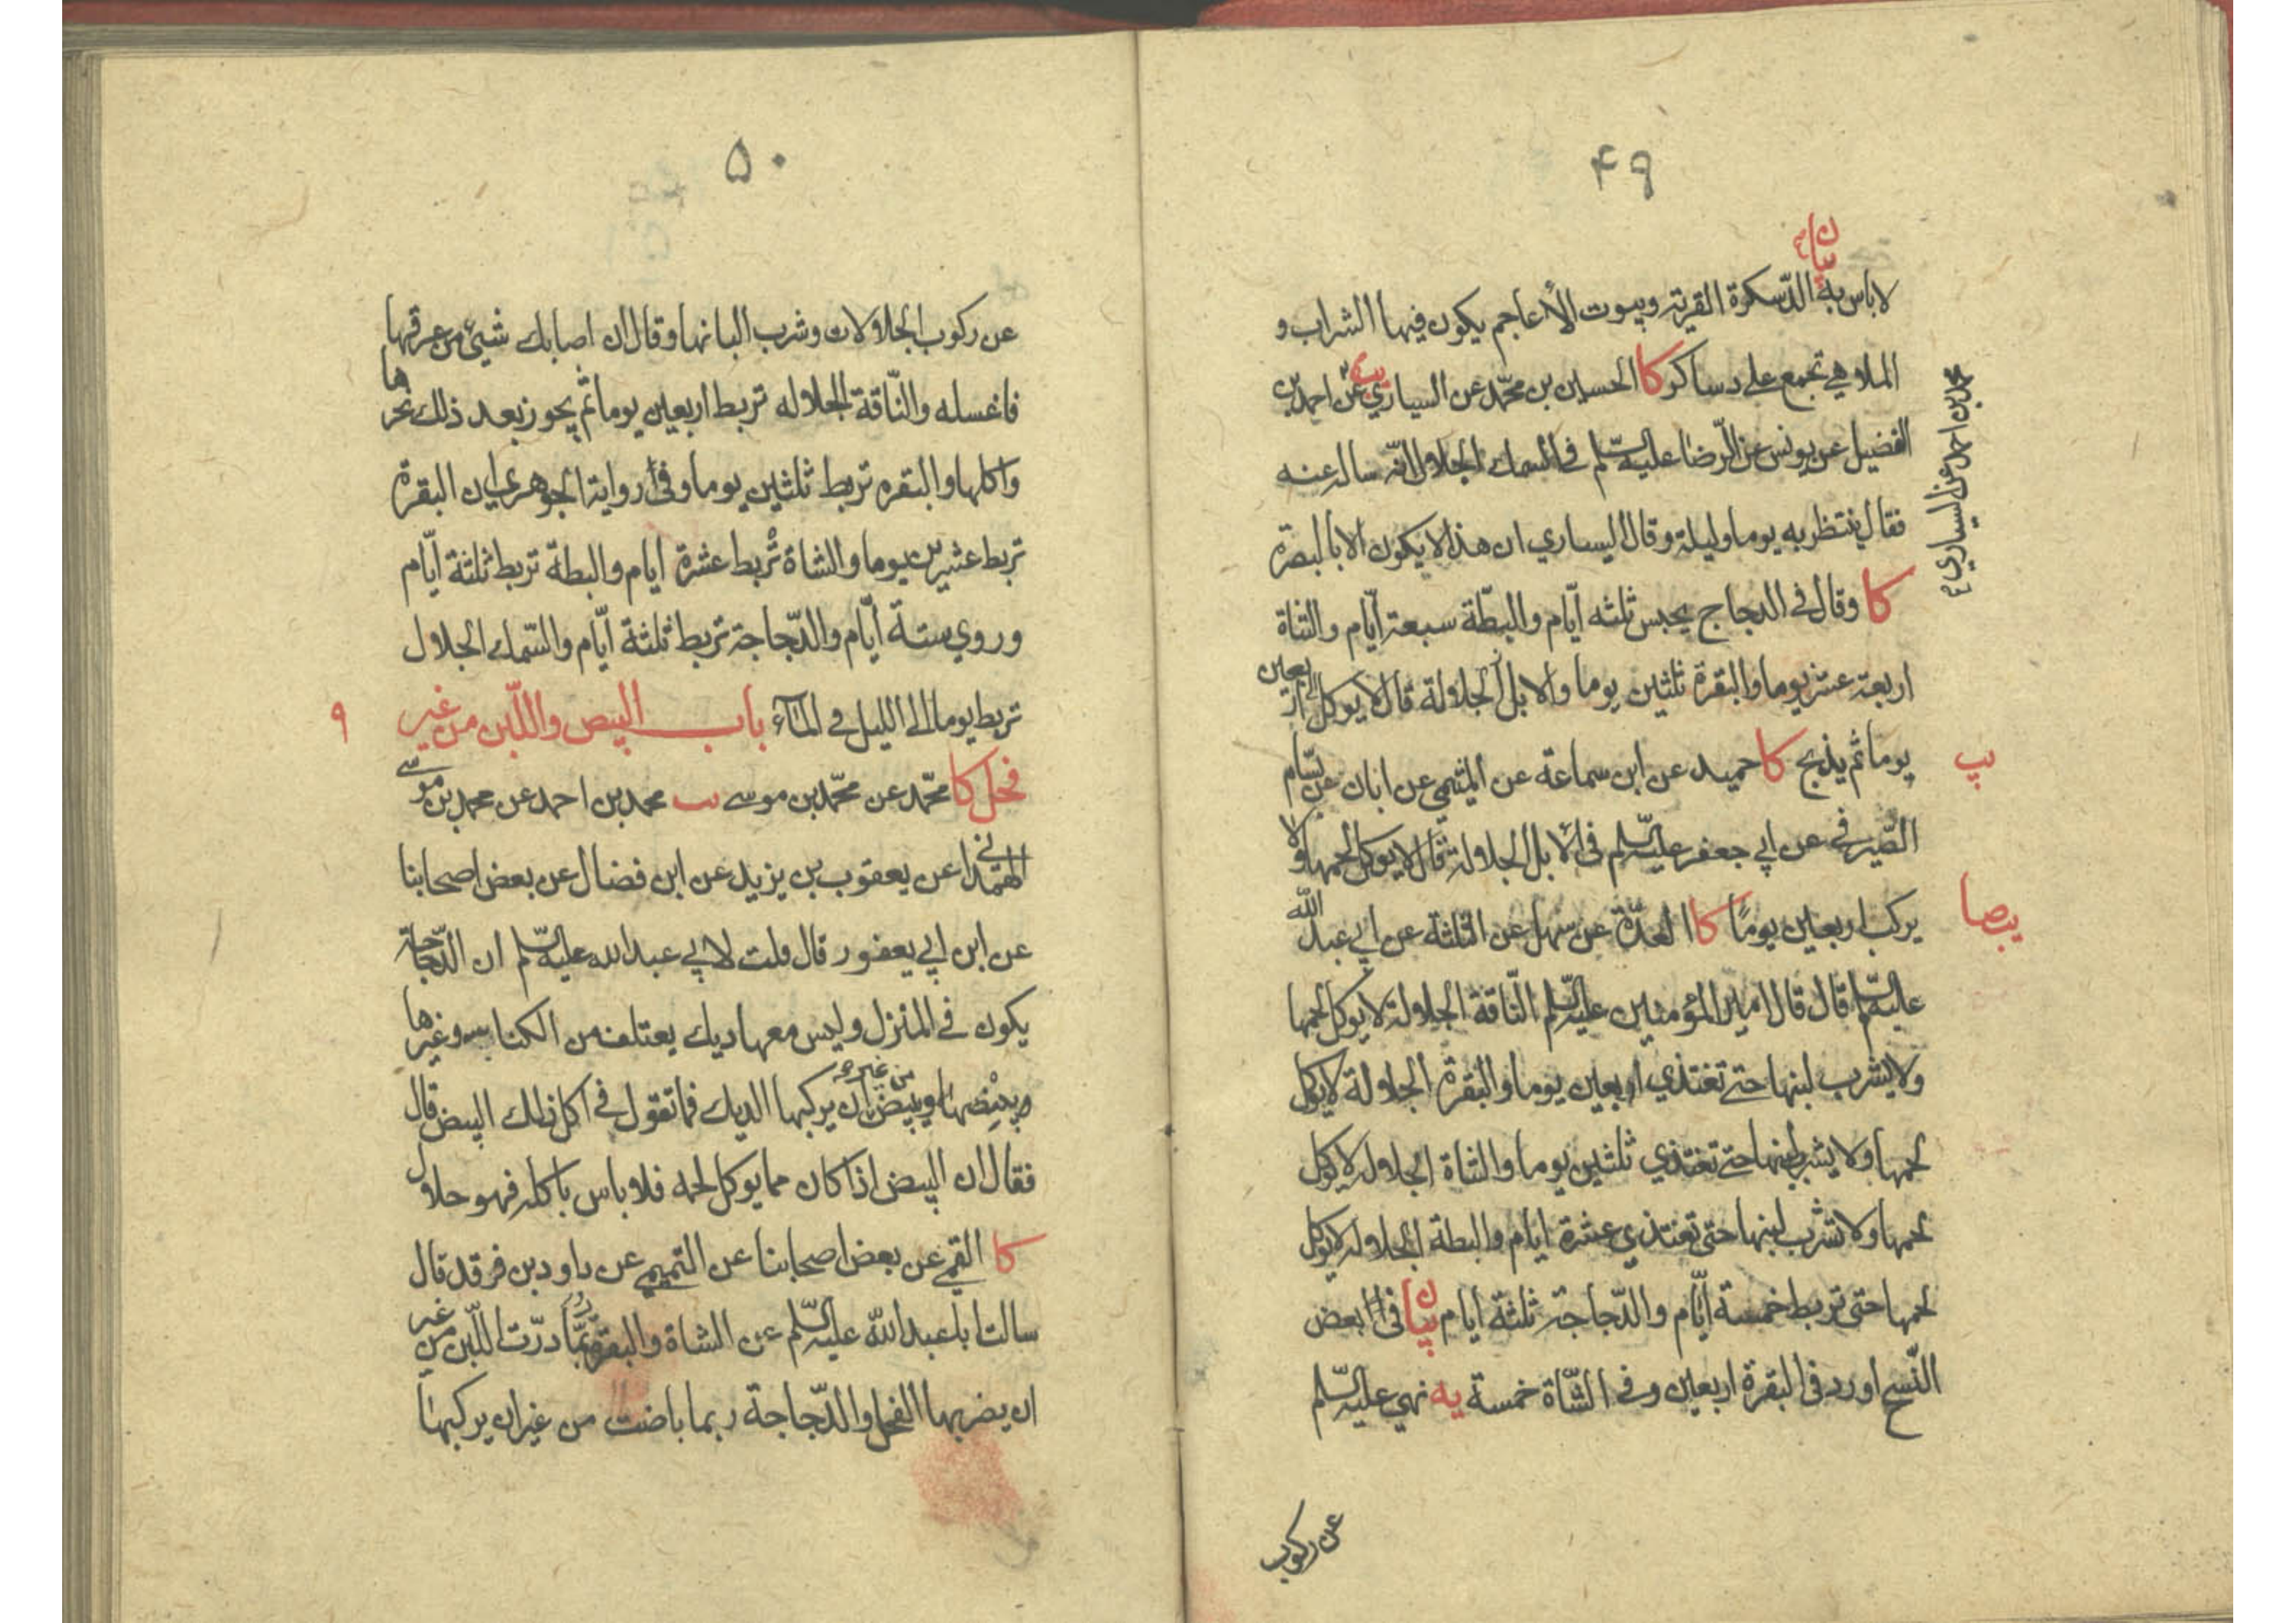 ۴۹
بيان
لا باس به الدّسكرة القرية وبيوت الأعاجم يكون فيها الشراب و
الملاهي تجمع على دساكر كا الحسين بن محمّد عن السياري يب عن احمد بن
محمد بن احمد عن السياري
الفضيل عن يونس عن الرّضا عليه السّلم في السمك الجلال انّه ساله عنه
فقال ينتظر به يوما وليلة وقال اليساري ان هذا لا يكون الا بالبصرة
كا وقال في الدجاج يحبس ثلثه ايّام والبطّة سبعة ايّام والشاة
اربعة عشر يوما والبقرة ثلثين يوما والابل الجلالة قال لا يوكل الى اربعين
يوما ثم يذبح كا حميد عن ابن سماعة عن الميثمي عن ابان عن بسّام
يب
الصّيرفي عن ابي جعفر عليه السّلم في الابل الجلالة قال لا يوكل لحمها ولا
يركب اربعين يومًا كا العدّة عن سهل عن الثلثة عن ابي عبد الله
يبصا
عليه السّلم قال قال امير المؤمنين عليه السّلم النّاقة الجلالة لا يوكل لحمها
ولا يشرب لبنها حتى تغتذي اربعين يوما والبقرة الجلالة لا يوكل
لحمها ولا يشرب لبنها حتى تغتذي ثلثين يوما والشاة الجلاله لا يوكل
لحمها ولا تشرب لبنها حتى تغتذي عشرة ايام والبطة الجلاله لا يوكل
لحمها حتى تربط خمسة ايّام والدّجاجة ثلثة ايام بيان في بعض
النّسخ اورد في البقرة اربعين وفي الشّاة خمسة يه نهى عليه السّلم
عن ركوب
۵۰
عن ركوب الجلالات وشرب البانها وقال ان اصابك شيئ من عرقها
فاغسله والنّاقة الجلاله تربط اربعين يوما ثم يجوز بعد ذلك نحرها
واكلها والبقره تربط ثلثين يوما وفي رواية الجوهري ان البقرة
تربط عشرين يوما والشاة تربط عشرة ايام والبطة تربط ثلثة ايّام
وروي ستة ايّام والدّجاجة تربط ثلثة ايّام والسّمك الجلال
تربط يوما الى الليل في المآء باب البيض واللّبن من غير ۹
فحل كا محمّد عن محمّد بن موسى يب محمد بن احمد عن محمد بن موسى
الهمداني عن يعقوب بن يزيد عن ابن فضال عن بعض اصحابنا
عن ابن ابي يعفور قال قلت لابي عبد الله عليه السّلم ان الدّجاجة
يكون في المنزل وليس معها ديك يعتلف من الكناسه وغيرها
وبيض من غير ان يركبها الديك فما تقول في اكل ذلك البيض قال
فقال ان البيض اذا كان مما يوكل لحمه فلا باس باكله فهو حلال
كا القمي عن بعض اصحابنا عن التميمي عن داود بن فرقد قال
سالت ابا عبد الله عليه السّلم عن الشاة والبقرة ربّما درّت اللّبن من غير
ان يضربها الفحل والدّجاجة ربما باضت من غير ان يركبها